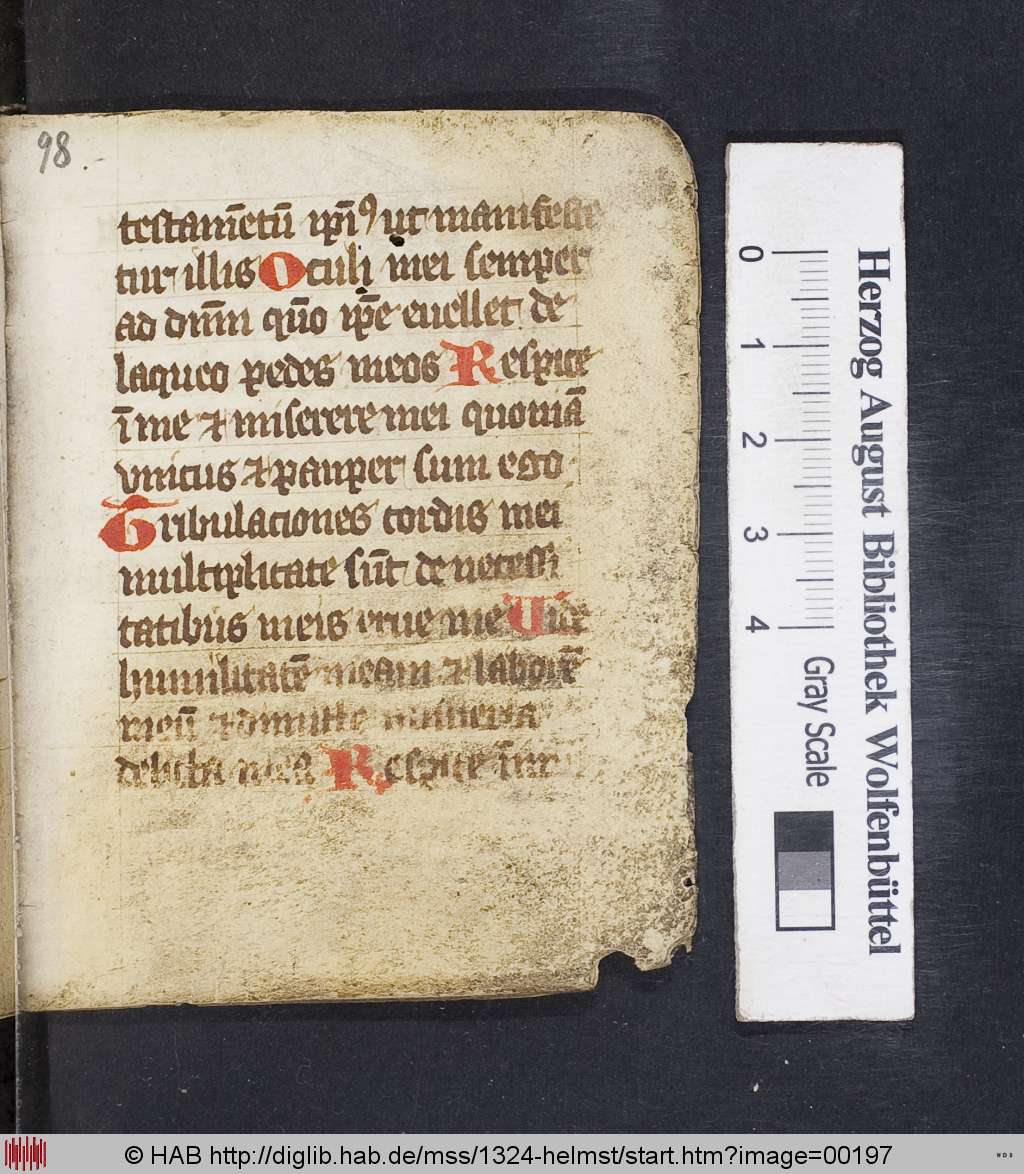 98
testam̄etū ip̄iꝰ ut manifeste
tur illis Oculi mei semper
ad dn̄m qm̄o ip̄e euellet de
laqueo pedes meos Respice
ī me ⁊ miserere mei quoniā
vnicus ⁊ pauper sum ego
Tribulaciones cordis mei
multiplicate sūt de necessi
tatibus meis erue me Uide
humilitatē meam ⁊ laborē
meū ⁊ dimitte uniuersa
delicta mea Respice inī
0 1 2 3 4
Gray Scale
Herzog August Bibliothek Wolfenbüttel
© HAB http://diglib.hab.de/mss/1324-helmst/start.htm?image=00197